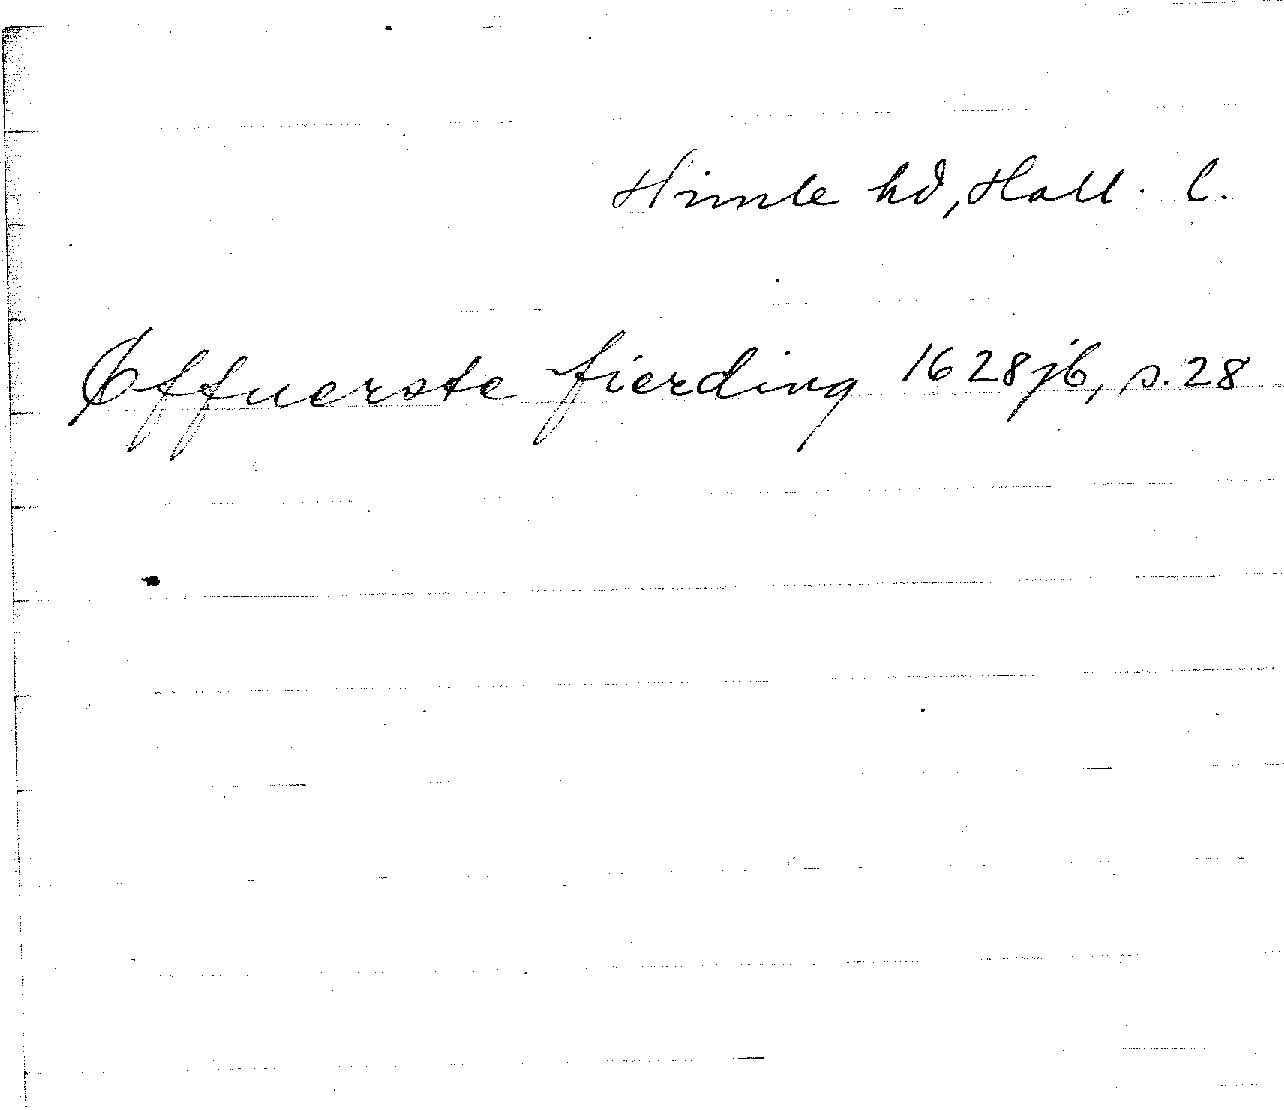 Himle hd, Hall. l.
Øffuerste fierding 1628 jb, s. 28